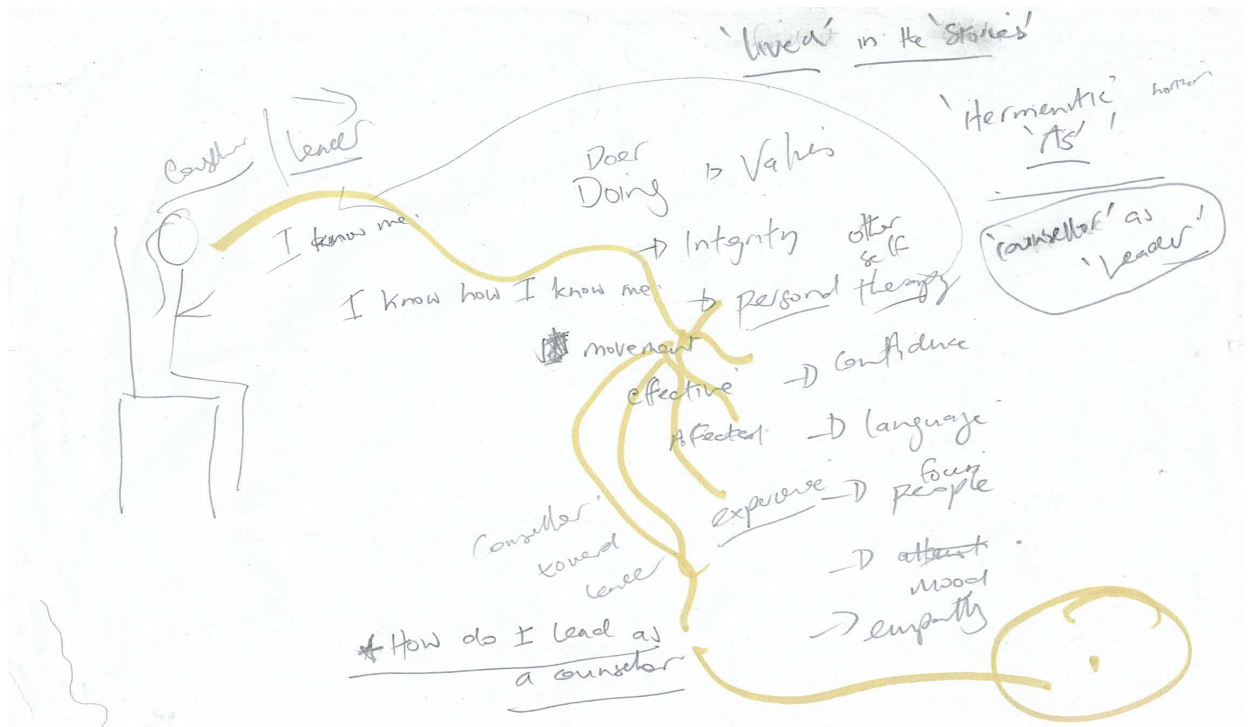 'lived' in the 'stories'
'Hermenutic' horizon
'As'
'counsellor' as
'Leader'
Leader
Doer
Doing → Values
I know me.
→ Integrity
other
self
I know how I know me.
→ personal therapy
movement
effective
→ confidence
Affected.
→ language
experience → people
focus
Counsellor
toward
leader
→
mood
→ empathy
* How do I lead as
a counselor